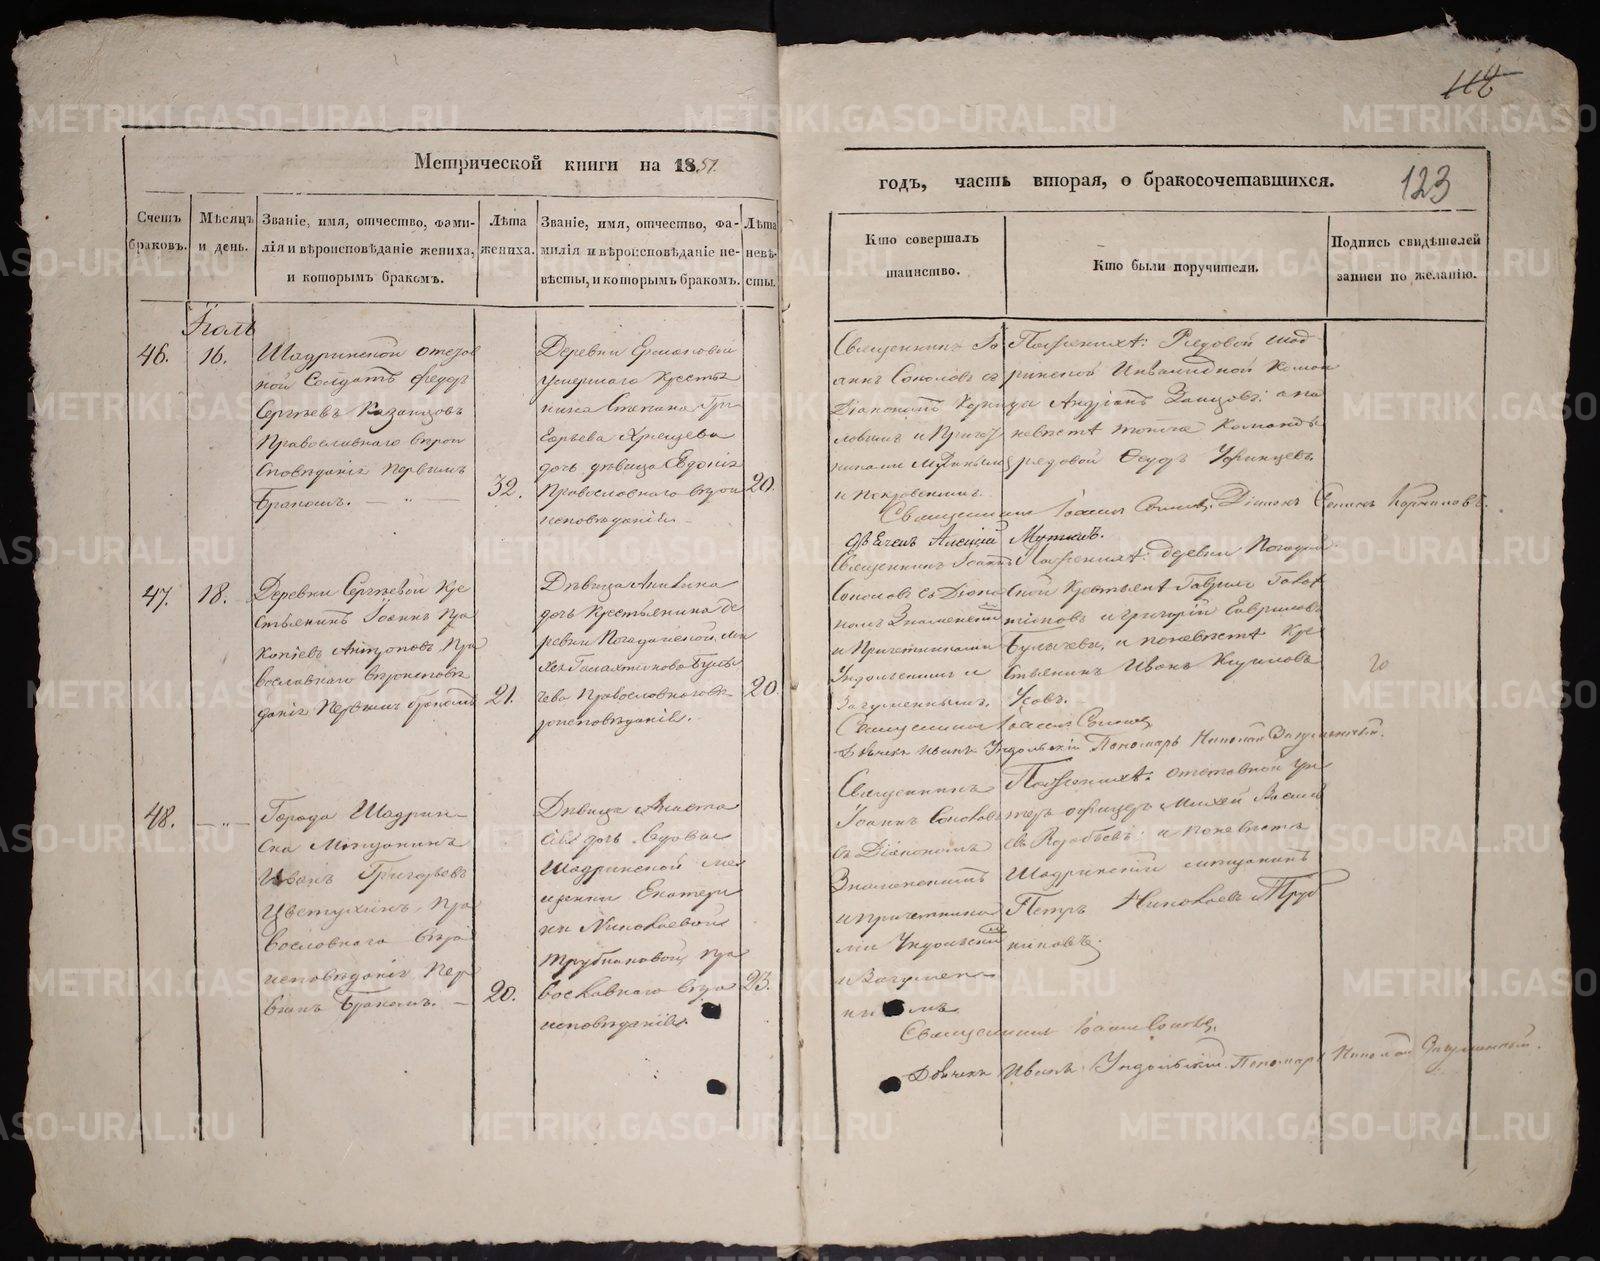 118
Метрической книги на 1851.
годъ, часть вторая, о бракосочетавшихся.
123
Счетъ браковъ.
Мѣсяцъ и день.
Званіе, имя, отчество, фами-
лія и вѣроисповѣданіе жениха,
и которымъ бракомъ.
Лѣта
жениха.
Званіе, имя, отчество, фа-
милія и вѣроисповѣданіе не-
вѣсты, и которымъ бракомъ.
Лѣта
невѣ-
сты.
Кто совершалъ
таинство.
Кто были поручители.
Подпись свидѣтелей
записи по желанію.
46.
16.
Шадринской
ной Солдатъ Федоръ
Сергѣевъ Казанцовъ
Православнаго вѣрои
сповѣданія первымъ
бракомъ.
32.
Деревни
умершаго Кресть
нина Степана Гри
горьева
дочь дѣвица Евдокія
Православнаго вѣрои
исповѣданія
20.
Священникъ Іо
аннъ Соколовъ съ
Діакономъ
ловымъ и Причет
никами
и Покровскимъ.
По женихѣ: Рядовой Шад
ринской Инвалидной Коман
ды Андріанъ Заицовъ; а по
невѣстѣ тойже Команды
рядовой Федоръ Уфинцевъ.
Священникъ Іоаннъ Соколовъ. Діаконъ
Дьячекъ Алексій
47.
18.
Деревни Сергѣевой Кре
стьянинъ Іоаннъ Про
копіевъ Антроповъ Пра
вославнаго вѣроисповѣ
данія Первымъ бракомъ
21.
Дѣвица Акилина
дочь Крестьянина де
ревни Погадайской
Булы
чева Православнаго вѣ
роисповѣданія.
20.
Священникъ Іоаннъ
Соколовъ съ Діако
номъ Знаменскимъ
и Причетниками
Ундольскимъ и
Загуменнымъ.
По женихѣ: деревни Погадай
ской Крестьяне Гаврило
и Григорій Гавриловъ
Булычевы, и по невѣстѣ Кре
стьянинъ Иванъ Кириловъ
Священникъ Іоаннъ Соколовъ
Дьячекъ Иванъ Ундольскій Пономарь Николай Загуменный.
48.
Города Шадрин-
ска Мѣщанинъ
Иванъ Григорьевъ
Цветухинъ, Пра
вославнаго вѣро
исповѣданія, Пер
вымъ Бракомъ.
20.
Дѣвица Анаста
сія дочь вдовы
Шадринской ме
щанки Екатери
ны Николаевой
Трубниковой, пра
вославнаго вѣро
исповѣданія.
23.
Священникъ
Іоаннъ Соколовъ
съ Діакономъ
Знаменскимъ
и Причетника
ми Ундольским
и Загумен
нымъ
По женихѣ: отставной Ун
теръ офицеръ Михей Васил
евъ Воробьевъ; и по невѣстѣ
Шадринскій мѣщанинъ
Петръ Николаевъ Труб
никовъ.
Священникъ Іоаннъ Соколовъ.
Дьячекъ Иванъ Ундольскій. Пономарь Николай Загуменный.
METRIKI.GASO-URAL.RU